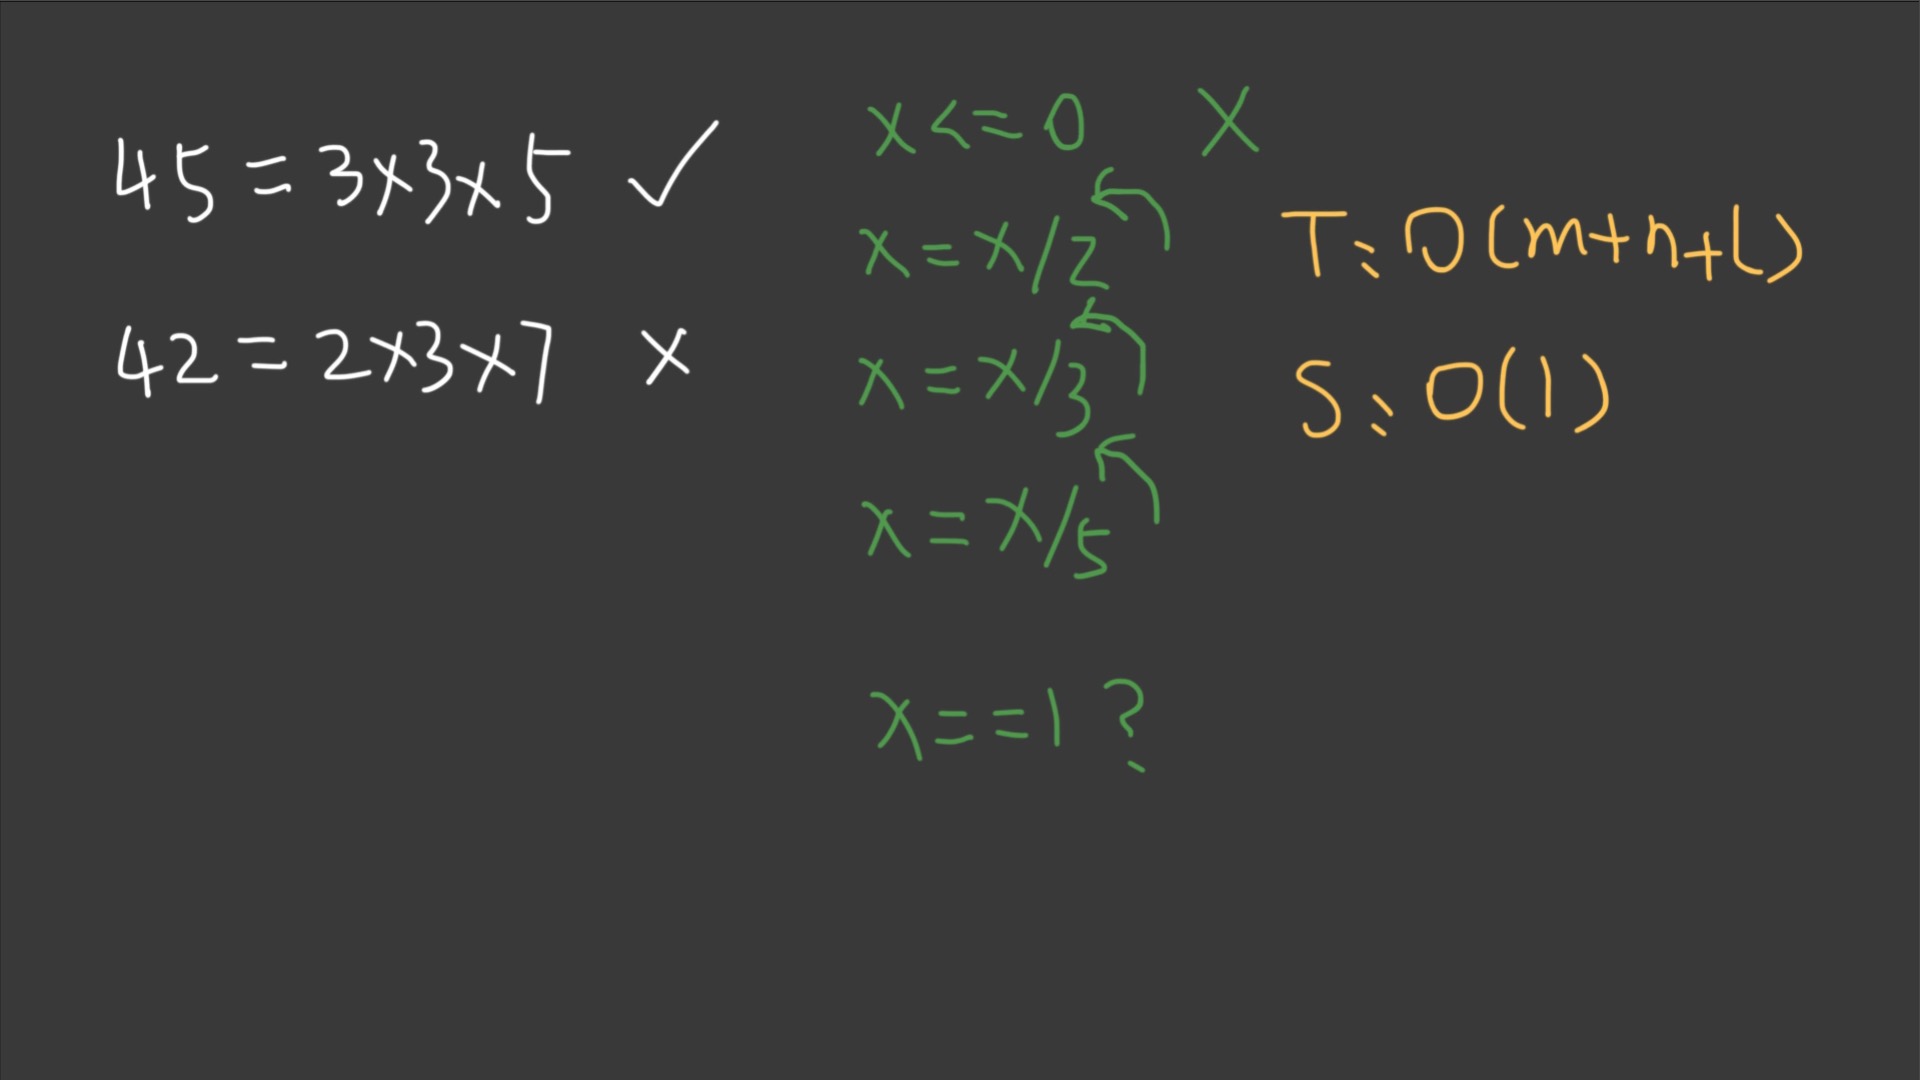 45 = 3x3x5 ✓
42 = 2x3x7 x
x<=0 X
x=x/2
x=x/3
x=x/5
x==1?
T: O(m+n+l)
S: O(1)